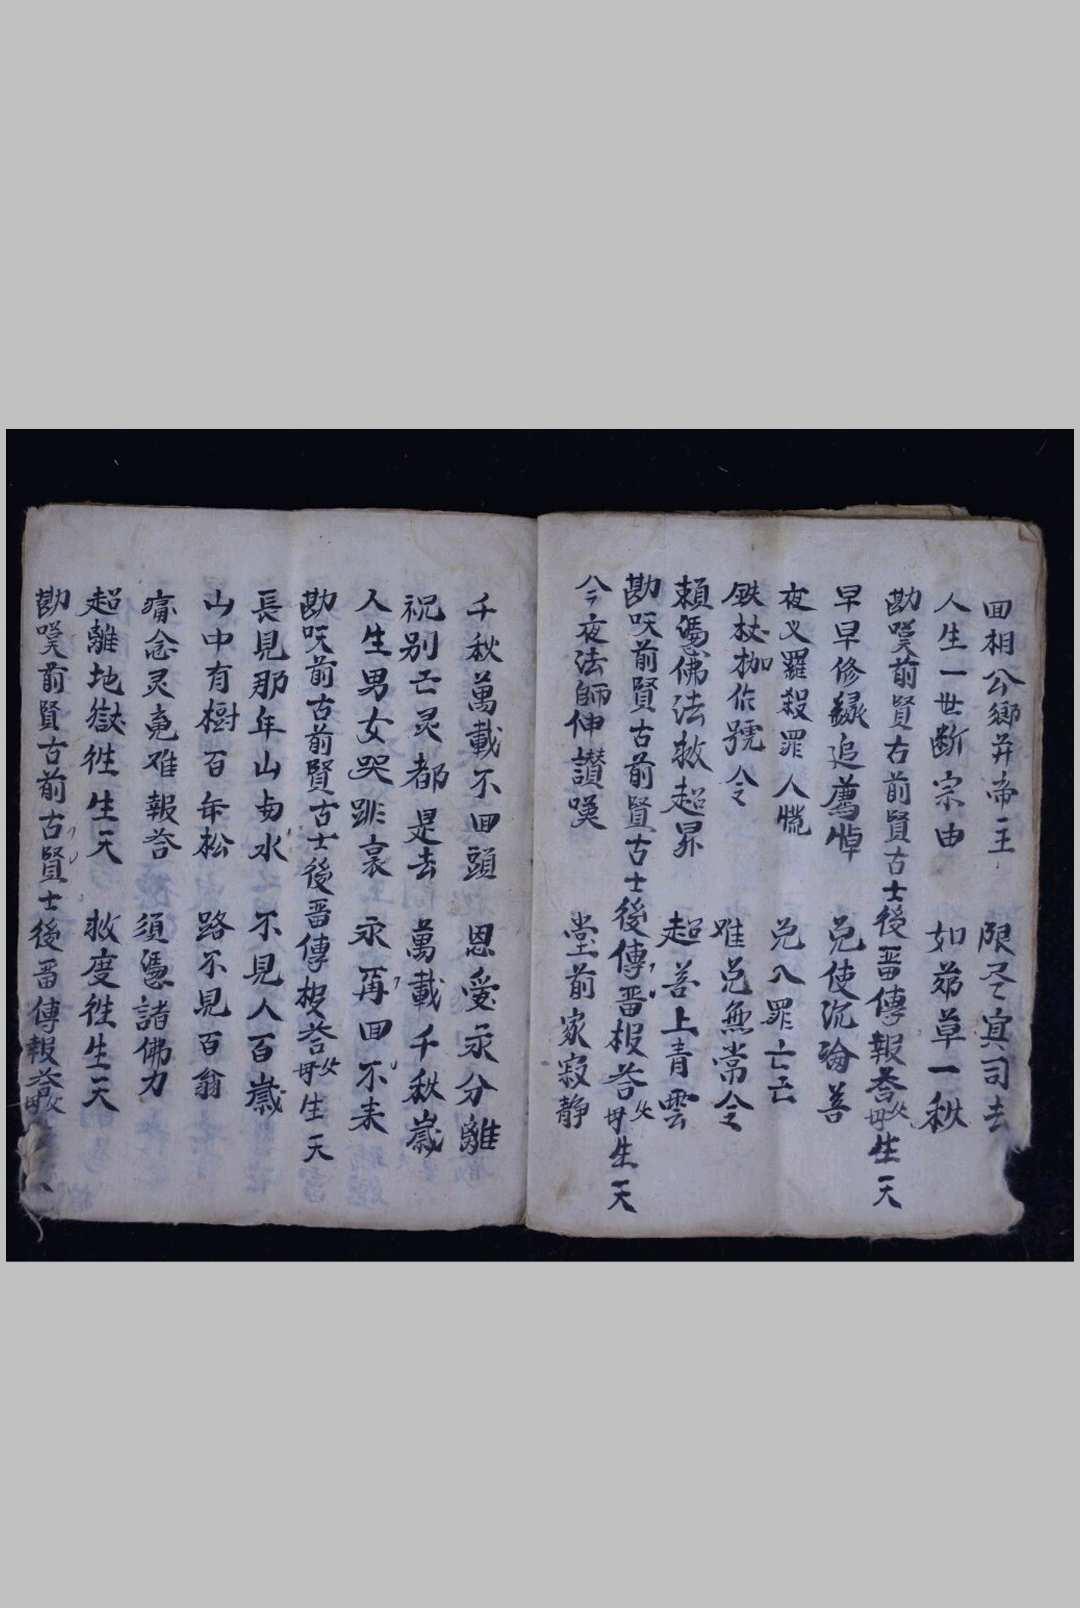 囬相公卿并帝王　限尽冥司去
人生一世断宗由　如茆草一秋
勘嘆前賢古前賢古士後畨傳報荅父母生天
早早修縁追薦悼　免使沉淪善
夜乂羅殺罪人慌　免入罪亡亡
鉄杖枷作號令　难免無常令
賴憑佛法救超昇　超善上青雲
勘叹前賢古前賢古士後傳畨报荅父母生天
今夜法師伸讃嘆　堂前家寂静
千秋萬載不囬頭　恩愛永分離
祝别亡灵都是去　萬載千秋歳
人生男女哭跳哀　永再囬不来
勘叹前古前賢古士後畨傳报荅父母生天
長見那年山与水　不見人百歳
山中有樹百年松　路不見百翁
痛念灵魂难報荅　須憑諸佛力
超離地獄徃生天　救度徃生天
勘嘆前賢古前古賢士後畨傳報荅父母